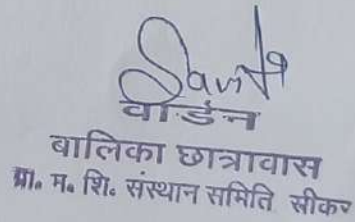 वार्डन
बालिका छात्रावास
ग्रा॰ म॰ शि॰ संस्थान समिति सीकर